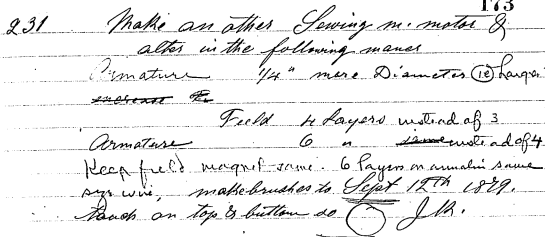 173
231 Make an other Sewing m. motor &
alter in the following maner
Armature 1/4" more Diameter (ie) Larger
increase the
Field 4 Layers instead of 3
Armature 6 " instead of 4
Keep field magnet same. 6 layers on armatur same
size wire, make brushes to Sept 12th 1879.
touch on top & buttom so J.K.